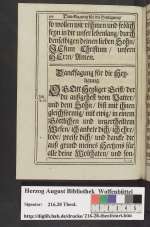 Dancksagung für die Heyligung.
so wollen wir rühmen und frölich
seyn in dir unser lebenlang / durch
denselbigen deinen lieben Sohn /
JEsum Christum / unsern
HErrn / Amen.
Dancksagung für die Hey-
ligung.
O GOtt Heyliger Geist / der
du außgehest vom Vatter /
und dem Sohn / bist mit ihnen
gleichförmig / mit ewig / in einem
Göttlichen und unzertheilten
Wesen / ich anbete dich / ich ehre
lobe / preise dich / und dancke dir
auß grund meines Hertzens für
alle deine Wolthaten / und son-
Herzog August Bibliothek Wolfenbüttel
Signatur: 216.28 Theol.
http://diglib.hab.de/drucke/216-28-theol/start.htm